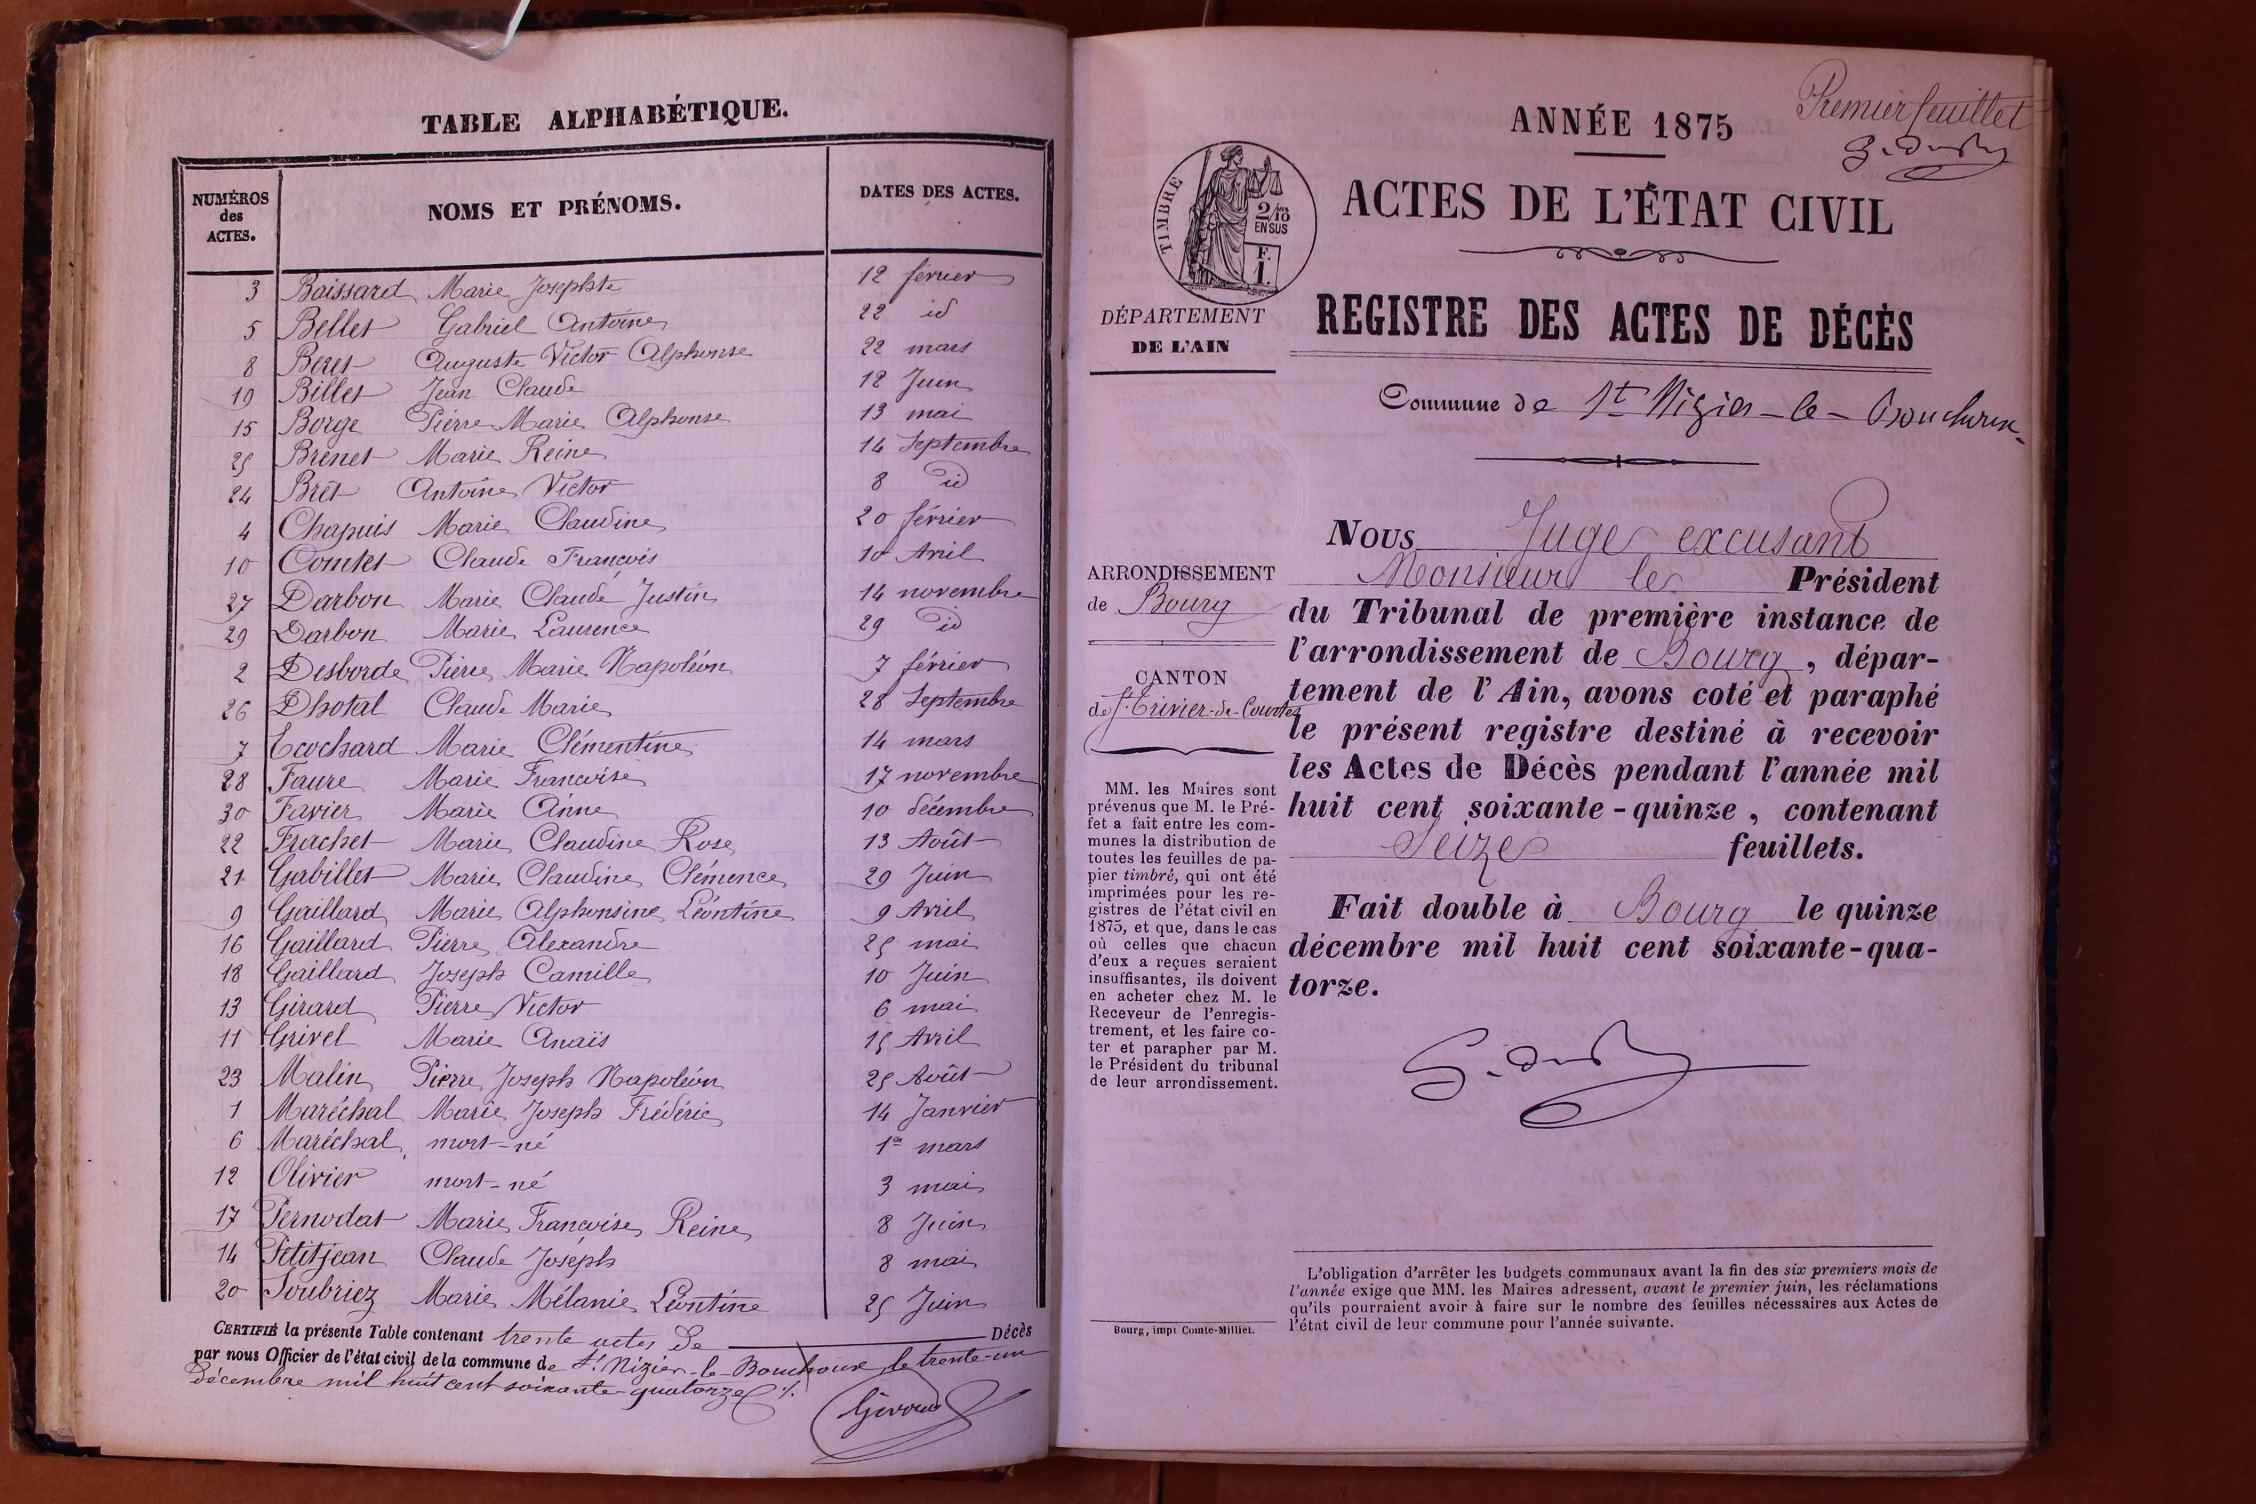 TABLE ALPHABÉTIQUE.
NUMÉROS des ACTES. NOMS ET PRÉNOMS. DATES DES ACTES.
3 Baissard Marie Josephte 12 février
5 Bellet Gabriel Antoine 22 id
8 Beret Auguste Victor Alphonse 22 mars
19 Billet Jean Claude 12 Juin
15 Borge Pierre Marie Alphonse 13 mai
25 Brenet Marie Reine 14 Septembre
24 Brêt Antoine Victor 8 id
4 Chapuis Marie Claudine 20 février
10 Comtet Claude François 10 Avril
27 Darbon Marie Claude Justin 14 novembre
29 Darbon Marie Laurence 29 id
2 Desborde Pierre Marie Napoléon 7 février
26 Dhotal Claude Marie 28 Septembre
7 Ecochard Marie Clémentine 14 mars
28 Faure Marie Françoise 17 novembre
30 Favier Marie Anne 10 décembre
22 Frachet Marie Claudine Rose 13 Août
21 Gabillet Marie Claudine Clémence 29 Juin
9 Gaillard Marie Alphonsine Léontine 9 Avril
16 Gaillard Pierre Alexandre 25 mai
18 Gaillard Joseph Camille 10 Juin
13 Girard Pierre Victor 6 mai
11 Grivel Marie Anaïs 15 Avril
23 Malin Pierre Joseph Napoléon 25 Août
1 Maréchal Marie Joseph Frédéric 14 Janvier
6 Maréchal mort-né 1er mars
12 Olivier mort-né 3 mai
17 Pernodat Marie Françoise Reine 8 Juin
14 Petitjean Claude Joseph 8 mai
20 Soubriez Marie Mélanie Léontine 25 Juin
CERTIFIÉ la présente Table contenant trente actes de Décès
par nous Officier de l'état civil de la commune de St Nizier-le-Bouchoux le trente-un
décembre mil huit cent soixante quatorze
Giroud
Premier feuillet
ANNÉE 1875
ACTES DE L'ÉTAT CIVIL
TIMBRE
2/10
EN SUS
F.
1.
DÉPARTEMENT
DE L'AIN
REGISTRE DES ACTES DE DÉCÈS
Commune de St Nizier-le-Bouchoux
ARRONDISSEMENT
de Bourg
CANTON
de St Trivier-de-Courtes
MM. les Maires sont
prévenus que M. le Pré-
fet a fait entre les com-
munes la distribution de
toutes les feuilles de pa-
pier timbré, qui ont été
imprimées pour les re-
gistres de l'état civil en
1875, et que, dans le cas
où celles que chacun
d'eux a reçues seraient
insuffisantes, ils doivent
en acheter chez M. le
Receveur de l'enregis-
trement, et les faire co-
ter et parapher par M.
le Président du tribunal
de leur arrondissement.
Bourg, impr Comte-Milliet.
Nous Juge excusant
Monsieur le Président
du Tribunal de première instance de
l'arrondissement de Bourg, dépar-
tement de l'Ain, avons coté et paraphé
le présent registre destiné à recevoir
les Actes de Décès pendant l'année mil
huit cent soixante-quinze, contenant
Seize feuillets.
Fait double à Bourg le quinze
décembre mil huit cent soixante-qua-
torze.
L'obligation d'arrêter les budgets communaux avant la fin des six premiers mois de
l'année exige que MM. les Maires adressent, avant le premier juin, les réclamations
qu'ils pourraient avoir à faire sur le nombre des feuilles nécessaires aux Actes de
l'état civil de leur commune pour l'année suivante.